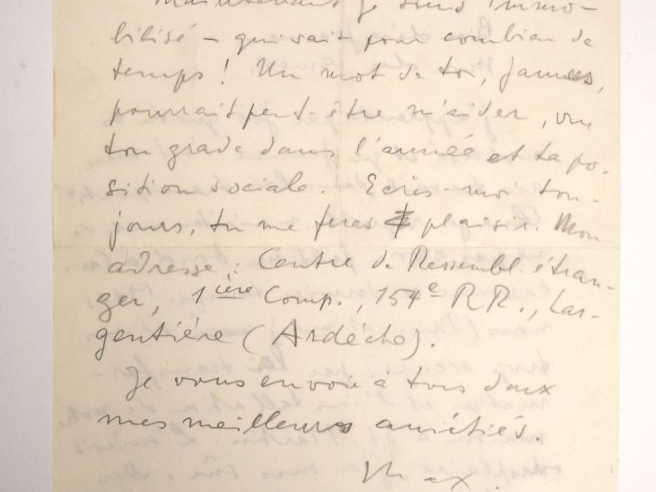 Maintenant je suis immo-
bilisé – qui sait pour combien de
temps ! Un mot de toi, James,
pourrait peut-être m'aider, vu
ton grade dans l'année et ta po-
sition sociale. Ecris-moi tou-
jours, tu me feras plaisir. Mon
adresse : Centre de Rassembl. étran-
ger, 1ière Comp., 154e RR., Lar-
gentière (Ardèche).
Je vous envoie à tous deux
mes meilleurs amitiés.
Max.